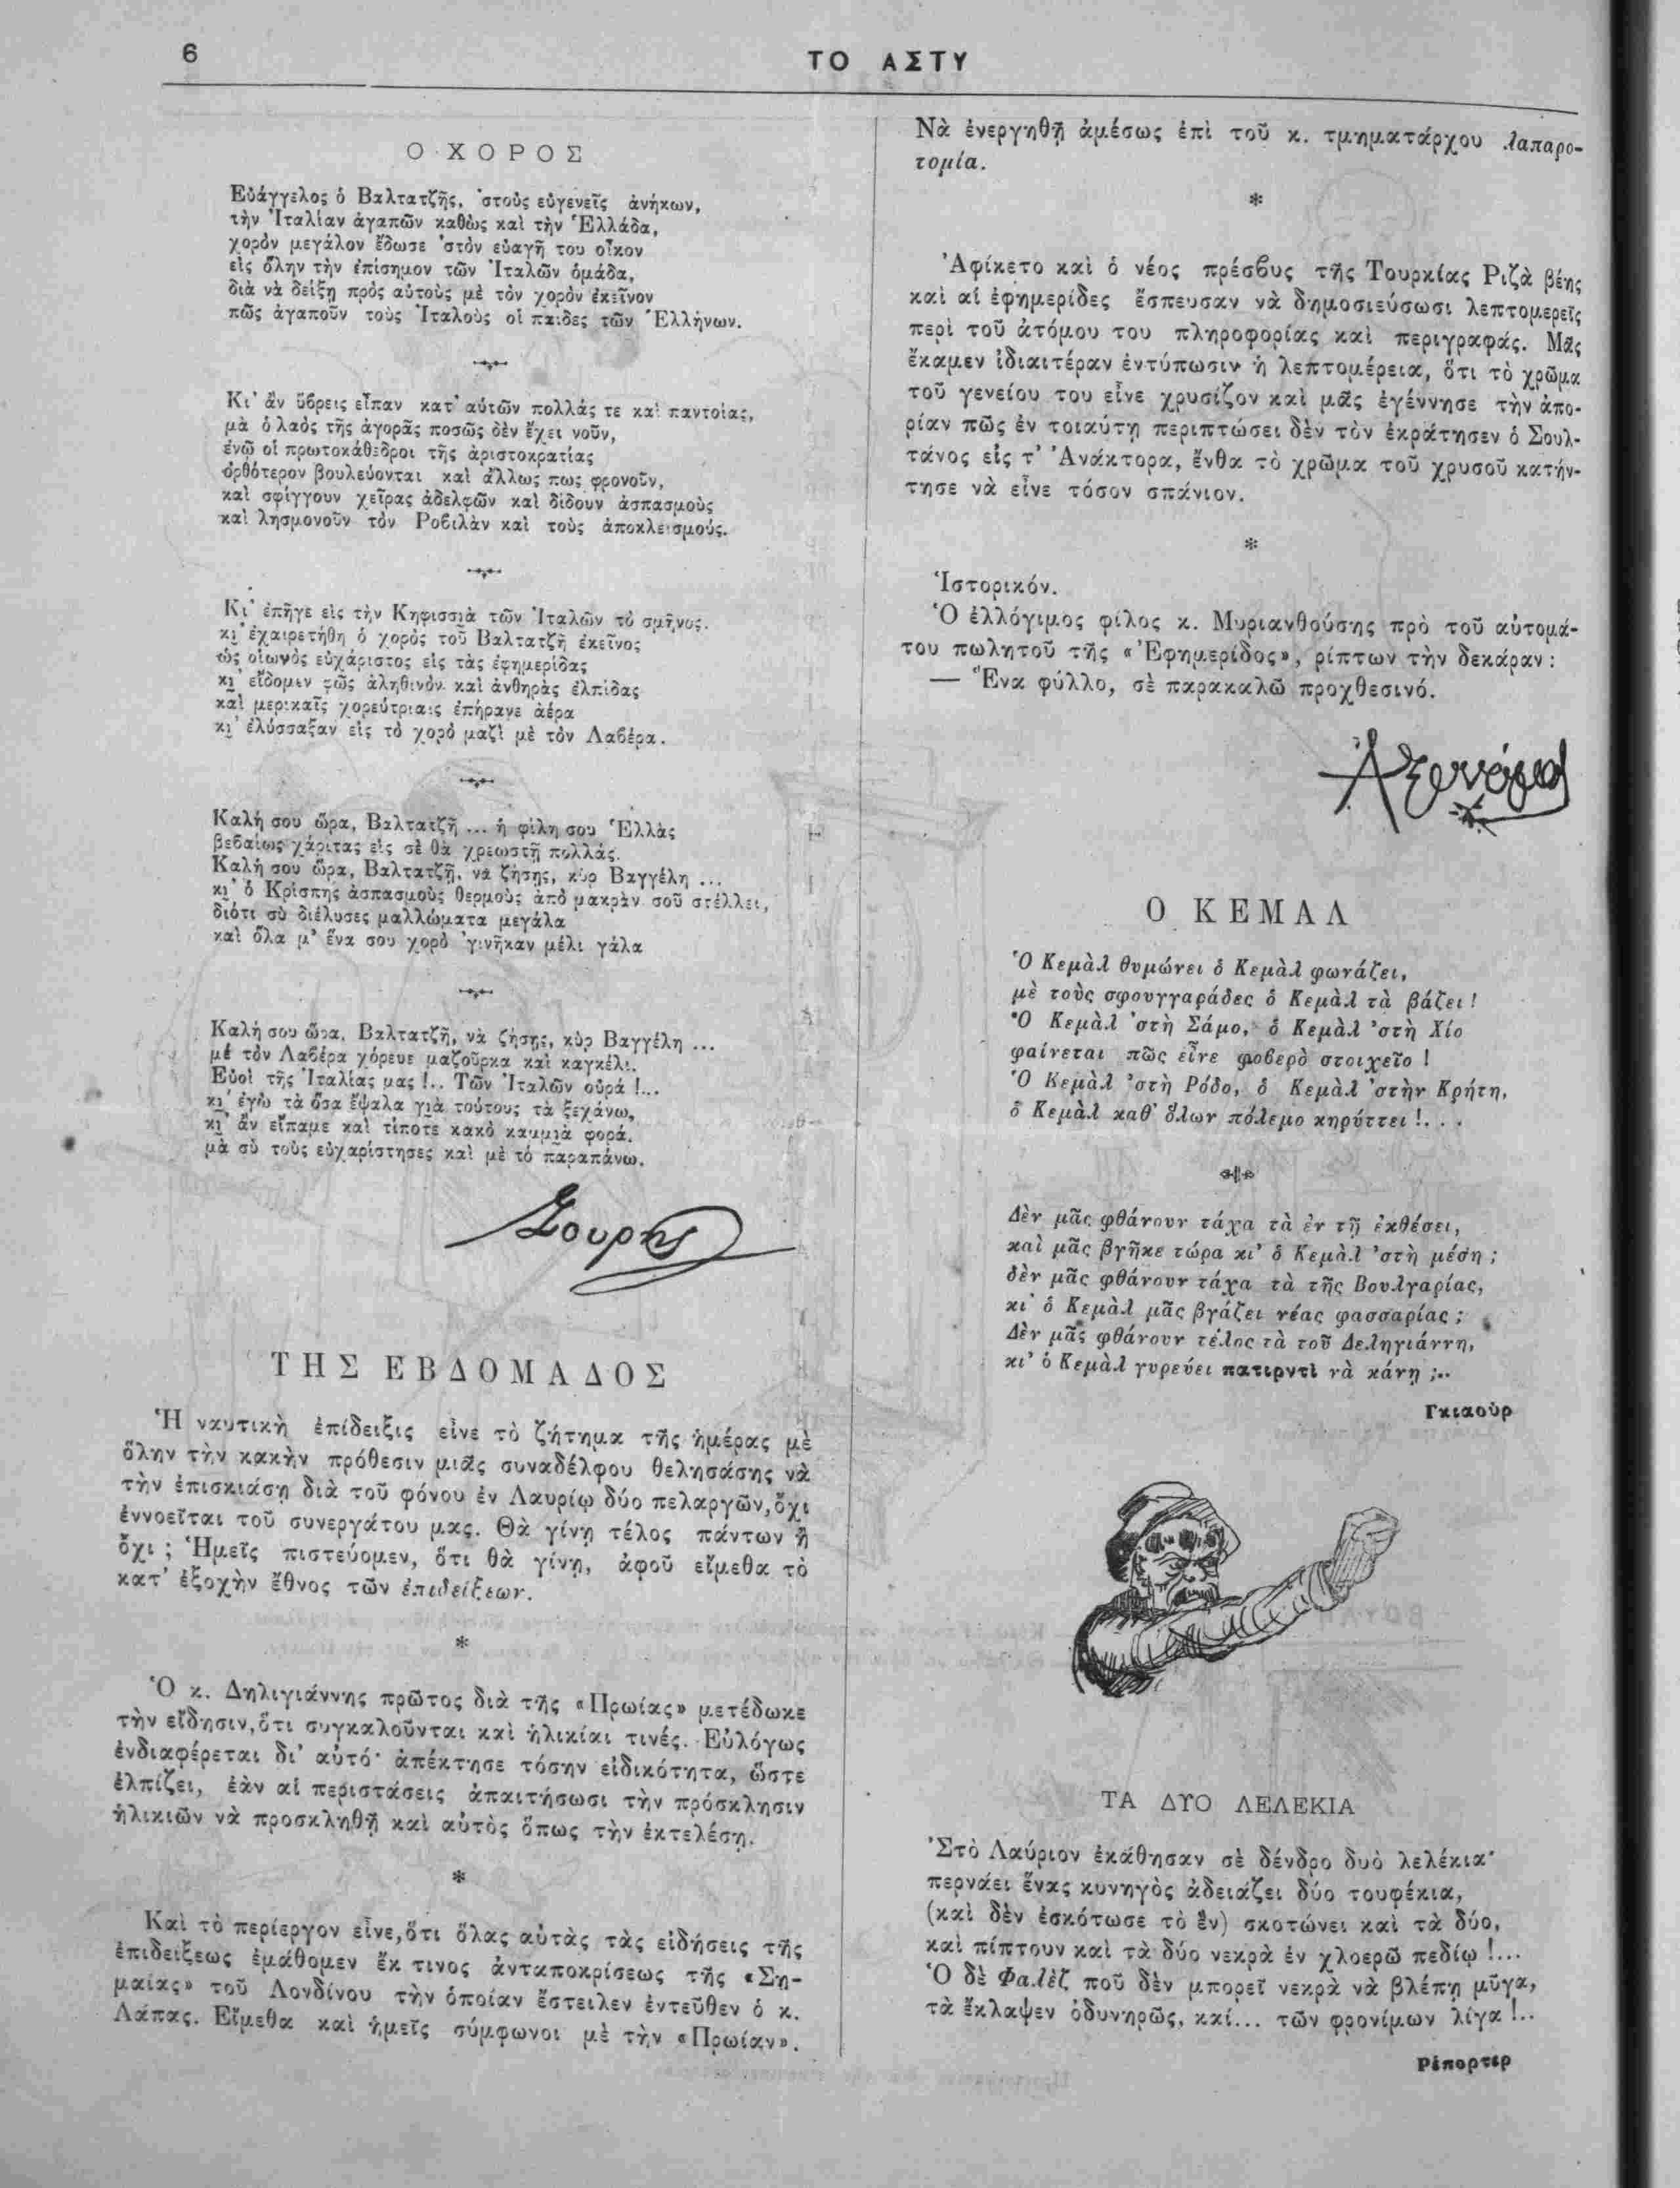 6
ΤΟ ΑΣΤΥ
Ο ΧΟΡΟΣ
Εὐάγγελος ὁ Βαλτατζῆς, 'στοὺς εὐγενεῖς ἀνήκων,
τὴν Ἰταλίαν ἀγαπῶν καθὼς καὶ τὴν Ἑλλάδα,
χορὸν μεγάλον ἔδωσε 'στὸν εὐαγῆ του οἶκον
εἰς ὅλην τὴν ἐπίσημον τῶν Ἰταλῶν ὁμάδα,
διὰ νὰ δείξῃ πρὸς αὐτοὺς μὲ τὸν χορὸν ἐκεῖνον
πῶς ἀγαποῦν τοὺς Ἰταλοὺς οἱ παῖδες τῶν Ἑλλήνων.
Κι' ἂν ὕβρεις εἶπαν κατ' αὐτῶν πολλάς τε καὶ παντοίας,
μὰ ὁ λαὸς τῆς ἀγορᾶς ποσῶς δὲν ἔχει νοῦν,
ἐνῷ οἱ πρωτοκάθεδροι τῆς ἀριστοκρατίας
ὀρθότερον βουλεύονται καὶ ἄλλως πως φρονοῦν,
καὶ σφίγγουν χεῖρας ἀδελφῶν καὶ δίδουν ἀσπασμοὺς
καὶ λησμονοῦν τὸν Ροβιλὰν καὶ τοὺς ἀποκλεισμούς.
Κι' ἐπῆγε εἰς τὴν Κηφισσιὰ τῶν Ἰταλῶν τὸ σμῆνος.
κι' ἐχαιρετήθη ὁ χορὸς τοῦ Βαλτατζῆ ἐκεῖνος
ὡς οἰωνὸς εὐχάριστος εἰς τὰς ἐφημερίδας
κι' εἴδομεν φῶς ἀληθινὸν καὶ ἀνθηρὰς ἐλπίδας
καὶ μερικαῖς χορεύτριαις ἐπήρανε ἀέρα
κι' ἐλύσσαξαν εἰς τὸ χορὸ μαζὶ μὲ τὸν Λαβέρα.
Καλή σου ὥρα, Βαλτατζῆ ... ἡ φίλη σου Ἑλλὰς
βεβαίως χάριτας εἰς σὲ θὰ χρεωστῇ πολλάς.
Καλή σου ὥρα, Βαλτατζῆ, νὰ ζήσῃς, κὺρ Βαγγέλη ...
κι' ὁ Κρίσπης ἀσπασμοὺς θερμοὺς ἀπὸ μακρὰν σοῦ στέλλει,
διότι σὺ διέλυσες μαλλώματα μεγάλα
καὶ ὅλα μ' ἕνα σου χορὸ 'γινῆκαν μέλι γάλα
Καλή σου ὥρα, Βαλτατζῆ, νὰ ζήσῃς, κὺρ Βαγγέλη ...
μὲ τὸν Λαβέρα χόρευε μαζοῦρκα καὶ καγκέλι.
Εὐοῖ τῆς Ἰταλίας μας !.. Τῶν Ἰταλῶν οὐρά !...
κι' ἐγὼ τὰ ὅσα ἔψαλα γιὰ τούτους τὰ ξεχάνω,
κι' ἂν εἴπαμε καὶ τίποτε κακὸ καμμιὰ φορά,
μὰ σὺ τοὺς εὐχαρίστησες καὶ μὲ τὸ παραπάνω.
Σουρῆς
ΤΗΣ ΕΒΔΟΜΑΔΟΣ
Ἡ ναυτικὴ ἐπίδειξις εἶνε τὸ ζήτημα τῆς ἡμέρας μὲ
ὅλην τὴν κακὴν πρόθεσιν μιᾶς συναδέλφου θελησάσης νὰ
τὴν ἐπισκιάσῃ διὰ τοῦ φόνου ἐν Λαυρίῳ δύο πελαργῶν, ὄχι
ἐννοεῖται τοῦ συνεργάτου μας. Θὰ γίνῃ τέλος πάντων ἢ
ὄχι ; Ἡμεῖς πιστεύομεν, ὅτι θὰ γίνῃ, ἀφοῦ εἴμεθα τὸ
κατ' ἐξοχὴν ἔθνος τῶν ἐπιδείξεων.
*
Ὁ κ. Δηλιγιάννης πρῶτος διὰ τῆς «Πρωίας» μετέδωκε
τὴν εἴδησιν, ὅτι συγκαλοῦνται καὶ ἡλικίαι τινές. Εὐλόγως
ἐνδιαφέρεται δι' αὐτό· ἀπέκτησε τόσην εἰδικότητα, ὥστε
ἐλπίζει, ἐὰν αἱ περιστάσεις ἀπαιτήσωσι τὴν πρόσκλησιν
ἡλικιῶν νὰ προσκληθῇ καὶ αὐτὸς ὅπως τὴν ἐκτελέσῃ.
*
Καὶ τὸ περίεργον εἶνε, ὅτι ὅλας αὐτὰς τὰς εἰδήσεις τῆς
ἐπιδείξεως ἐμάθομεν ἔκ τινος ἀνταποκρίσεως τῆς «Ση-
μαίας» τοῦ Λονδίνου τὴν ὁποίαν ἔστειλεν ἐντεῦθεν ὁ κ.
Λάπας. Εἴμεθα καὶ ἡμεῖς σύμφωνοι μὲ τὴν «Πρωίαν».
Νὰ ἐνεργηθῇ ἀμέσως ἐπὶ τοῦ κ. τμηματάρχου λαπαρο-
τομία.
*
Ἀφίκετο καὶ ὁ νέος πρέσβυς τῆς Τουρκίας Ριζὰ βέης
καὶ αἱ ἐφημερίδες ἔσπευσαν νὰ δημοσιεύσωσι λεπτομερεῖς
περὶ τοῦ ἀτόμου του πληροφορίας καὶ περιγραφάς. Μᾶς
ἔκαμεν ἰδιαιτέραν ἐντύπωσιν ἡ λεπτομέρεια, ὅτι τὸ χρῶμα
τοῦ γενείου του εἶνε χρυσίζον καὶ μᾶς ἐγέννησε τὴν ἀπο-
ρίαν πῶς ἐν τοιαύτῃ περιπτώσει δὲν τὸν ἐκράτησεν ὁ Σουλ-
τάνος εἰς τ' Ἀνάκτορα, ἔνθα τὸ χρῶμα τοῦ χρυσοῦ κατήν-
τησε νὰ εἶνε τόσον σπάνιον.
*
Ἱστορικόν.
Ὁ ἐλλόγιμος φίλος κ. Μυριανθούσης πρὸ τοῦ αὐτομά-
του πωλητοῦ τῆς «Ἐφημερίδος», ρίπτων τὴν δεκάραν :
— Ἕνα φύλλο, σὲ παρακαλῶ προχθεσινό.
Ο ΚΕΜΑΛ
Ὁ Κεμὰλ θυμώνει ὁ Κεμὰλ φωνάζει,
μὲ τοὺς σφουγγαράδες ὁ Κεμὰλ τὰ βάζει !
Ὁ Κεμὰλ 'στὴ Σάμο, ὁ Κεμὰλ 'στὴ Χίο
φαίνεται πῶς εἶνε φοβερὸ στοιχεῖο !
Ὁ Κεμὰλ 'στὴ Ρόδο, ὁ Κεμὰλ 'στὴν Κρήτη,
ὁ Κεμὰλ καθ' ὅλων πόλεμο κηρύττει !. . .
Δὲν μᾶς φθάνουν τάχα τὰ ἐν τῇ ἐκθέσει,
καὶ μᾶς βγῆκε τώρα κι' ὁ Κεμὰλ 'στὴ μέση ;
δὲν μᾶς φθάνουν τάχα τὰ τῆς Βουλγαρίας,
κι' ὁ Κεμὰλ μᾶς βγάζει νέας φασσαρίας ;
Δὲν μᾶς φθάνουν τέλος τὰ τοῦ Δεληγιάννη,
κι' ὁ Κεμὰλ γυρεύει πατιρντὶ νὰ κάνῃ ;..
Γκιαοὺρ
ΤΑ ΔΥΟ ΛΕΛΕΚΙΑ
'Στὸ Λαύριον ἐκάθησαν σὲ δένδρο δυὸ λελέκια·
περνάει ἕνας κυνηγὸς ἀδειάζει δύο τουφέκια,
(καὶ δὲν ἐσκότωσε τὸ ἓν) σκοτώνει καὶ τὰ δύο,
καὶ πίπτουν καὶ τὰ δύο νεκρὰ ἐν χλοερῷ πεδίῳ !...
Ὁ δὲ Φαλὲζ ποῦ δὲν μπορεῖ νεκρὰ νὰ βλέπῃ μῦγα,
τὰ ἔκλαψεν ὀδυνηρῶς, καί... τῶν φρονίμων λίγα !..
Ρέπορτερ